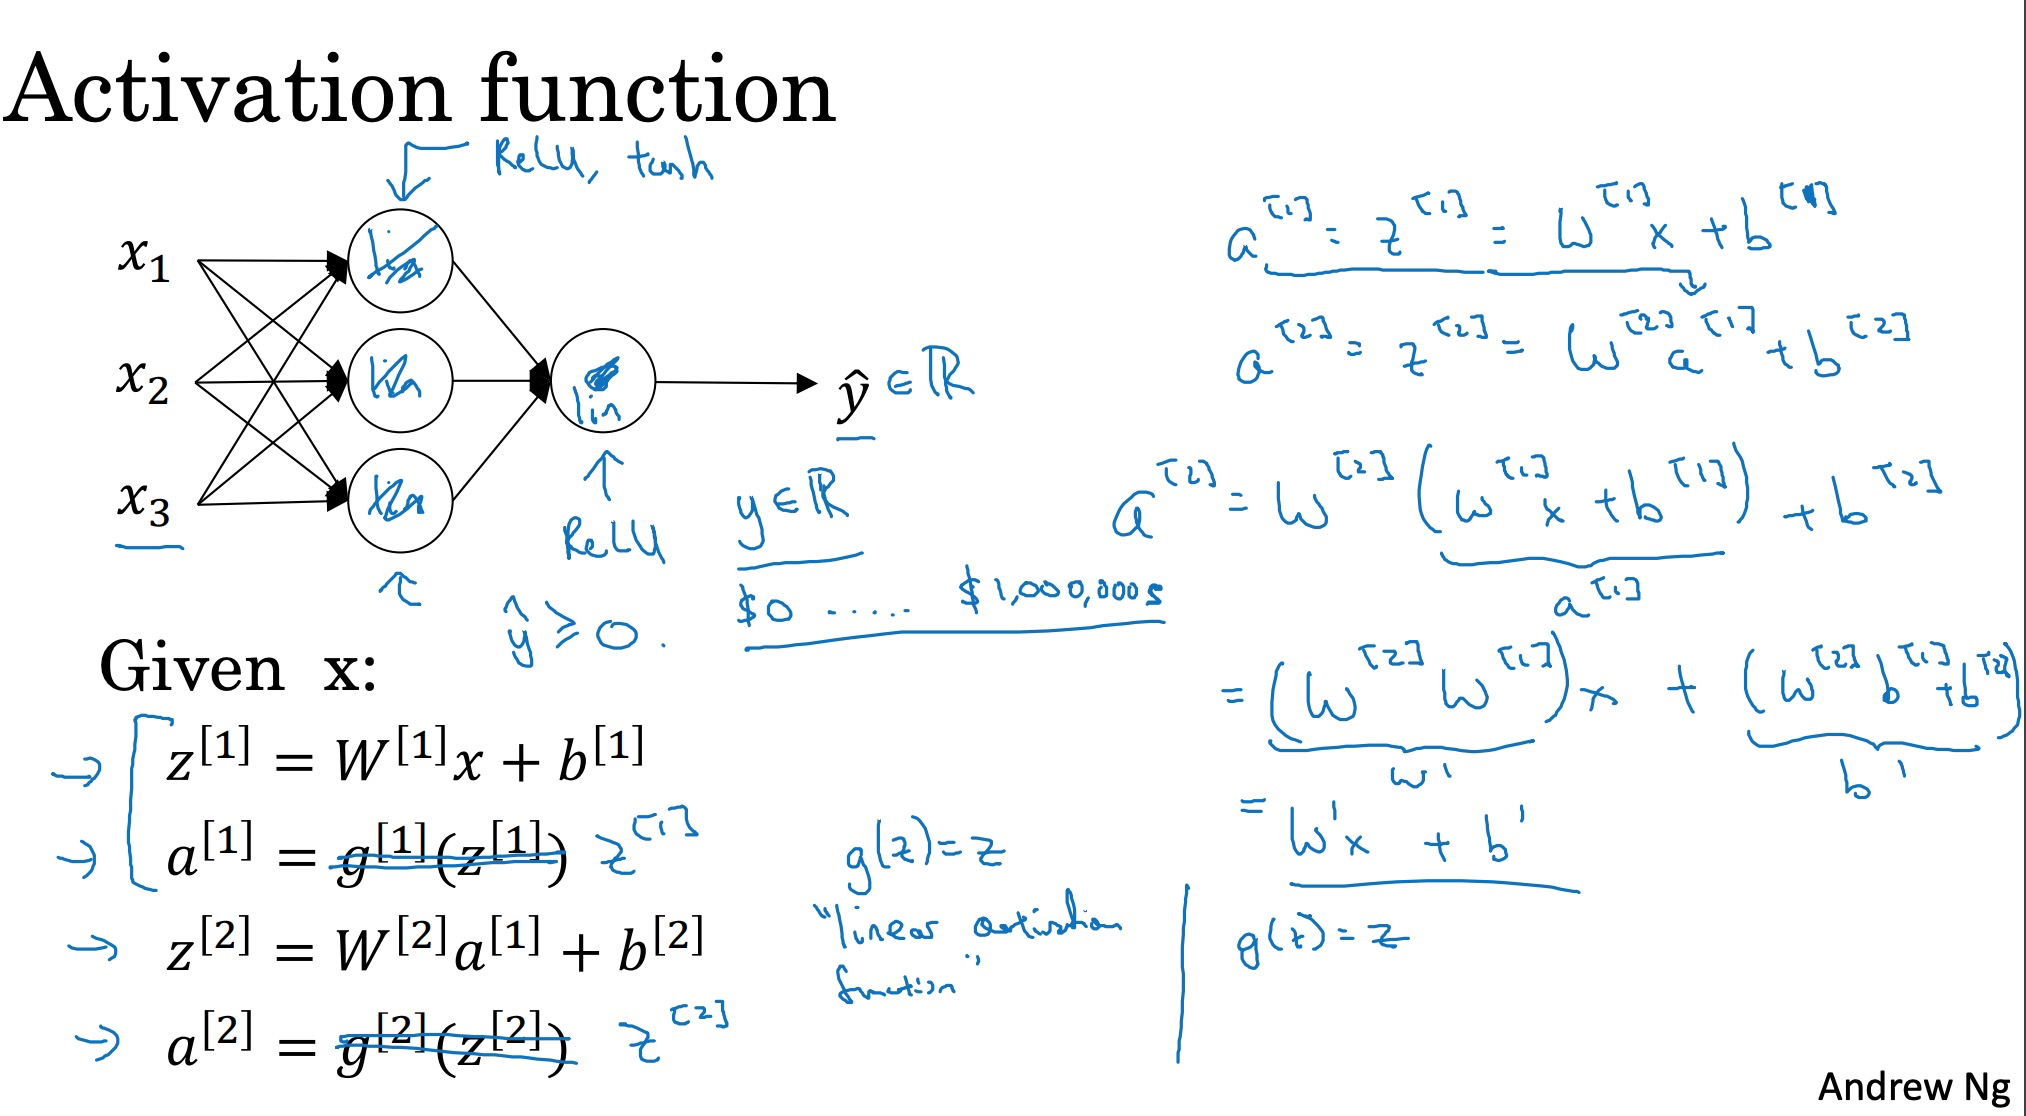 Activation function
ReLU, tanh
x₁
x₂
x₃
lin
ŷ ∈ ℝ
ReLU
y ∈ ℝ
ŷ ≥ 0.
$0 ..... $1,000,000s
Given x:
→ z^[1] = W^[1]x + b^[1]
→ a^[1] = g^[1](z^[1]) z^[1]
→ z^[2] = W^[2]a^[1] + b^[2]
→ a^[2] = g^[2](z^[2]) z^[2]
g(z) = z
"linear activation
function"
a^[1] = z^[1] = W^[1]x + b^[1]
a^[2] = z^[2] = W^[2]a^[1] + b^[2]
a^[2] = W^[2](W^[1]x + b^[1]) + b^[2]
a^[1]
= (W^[2]W^[1])x + (W^[2]b^[1] + b^[2])
W' b'
= W'x + b'
g(z) = z
Andrew Ng